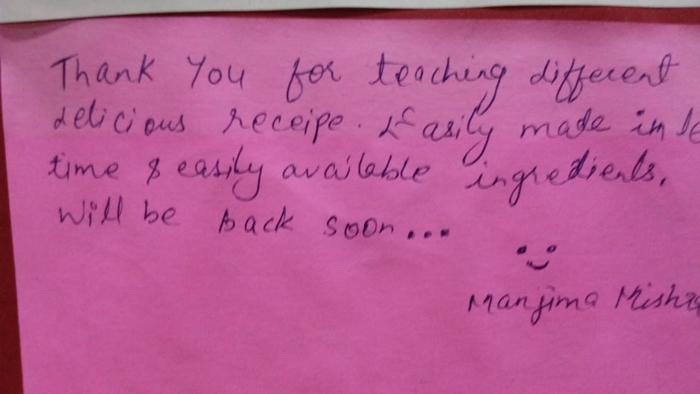 Thank You for teaching different
delicious receipe. Easily made in
time & easily available ingredients.
Will be back soon...
Manjima Mishra